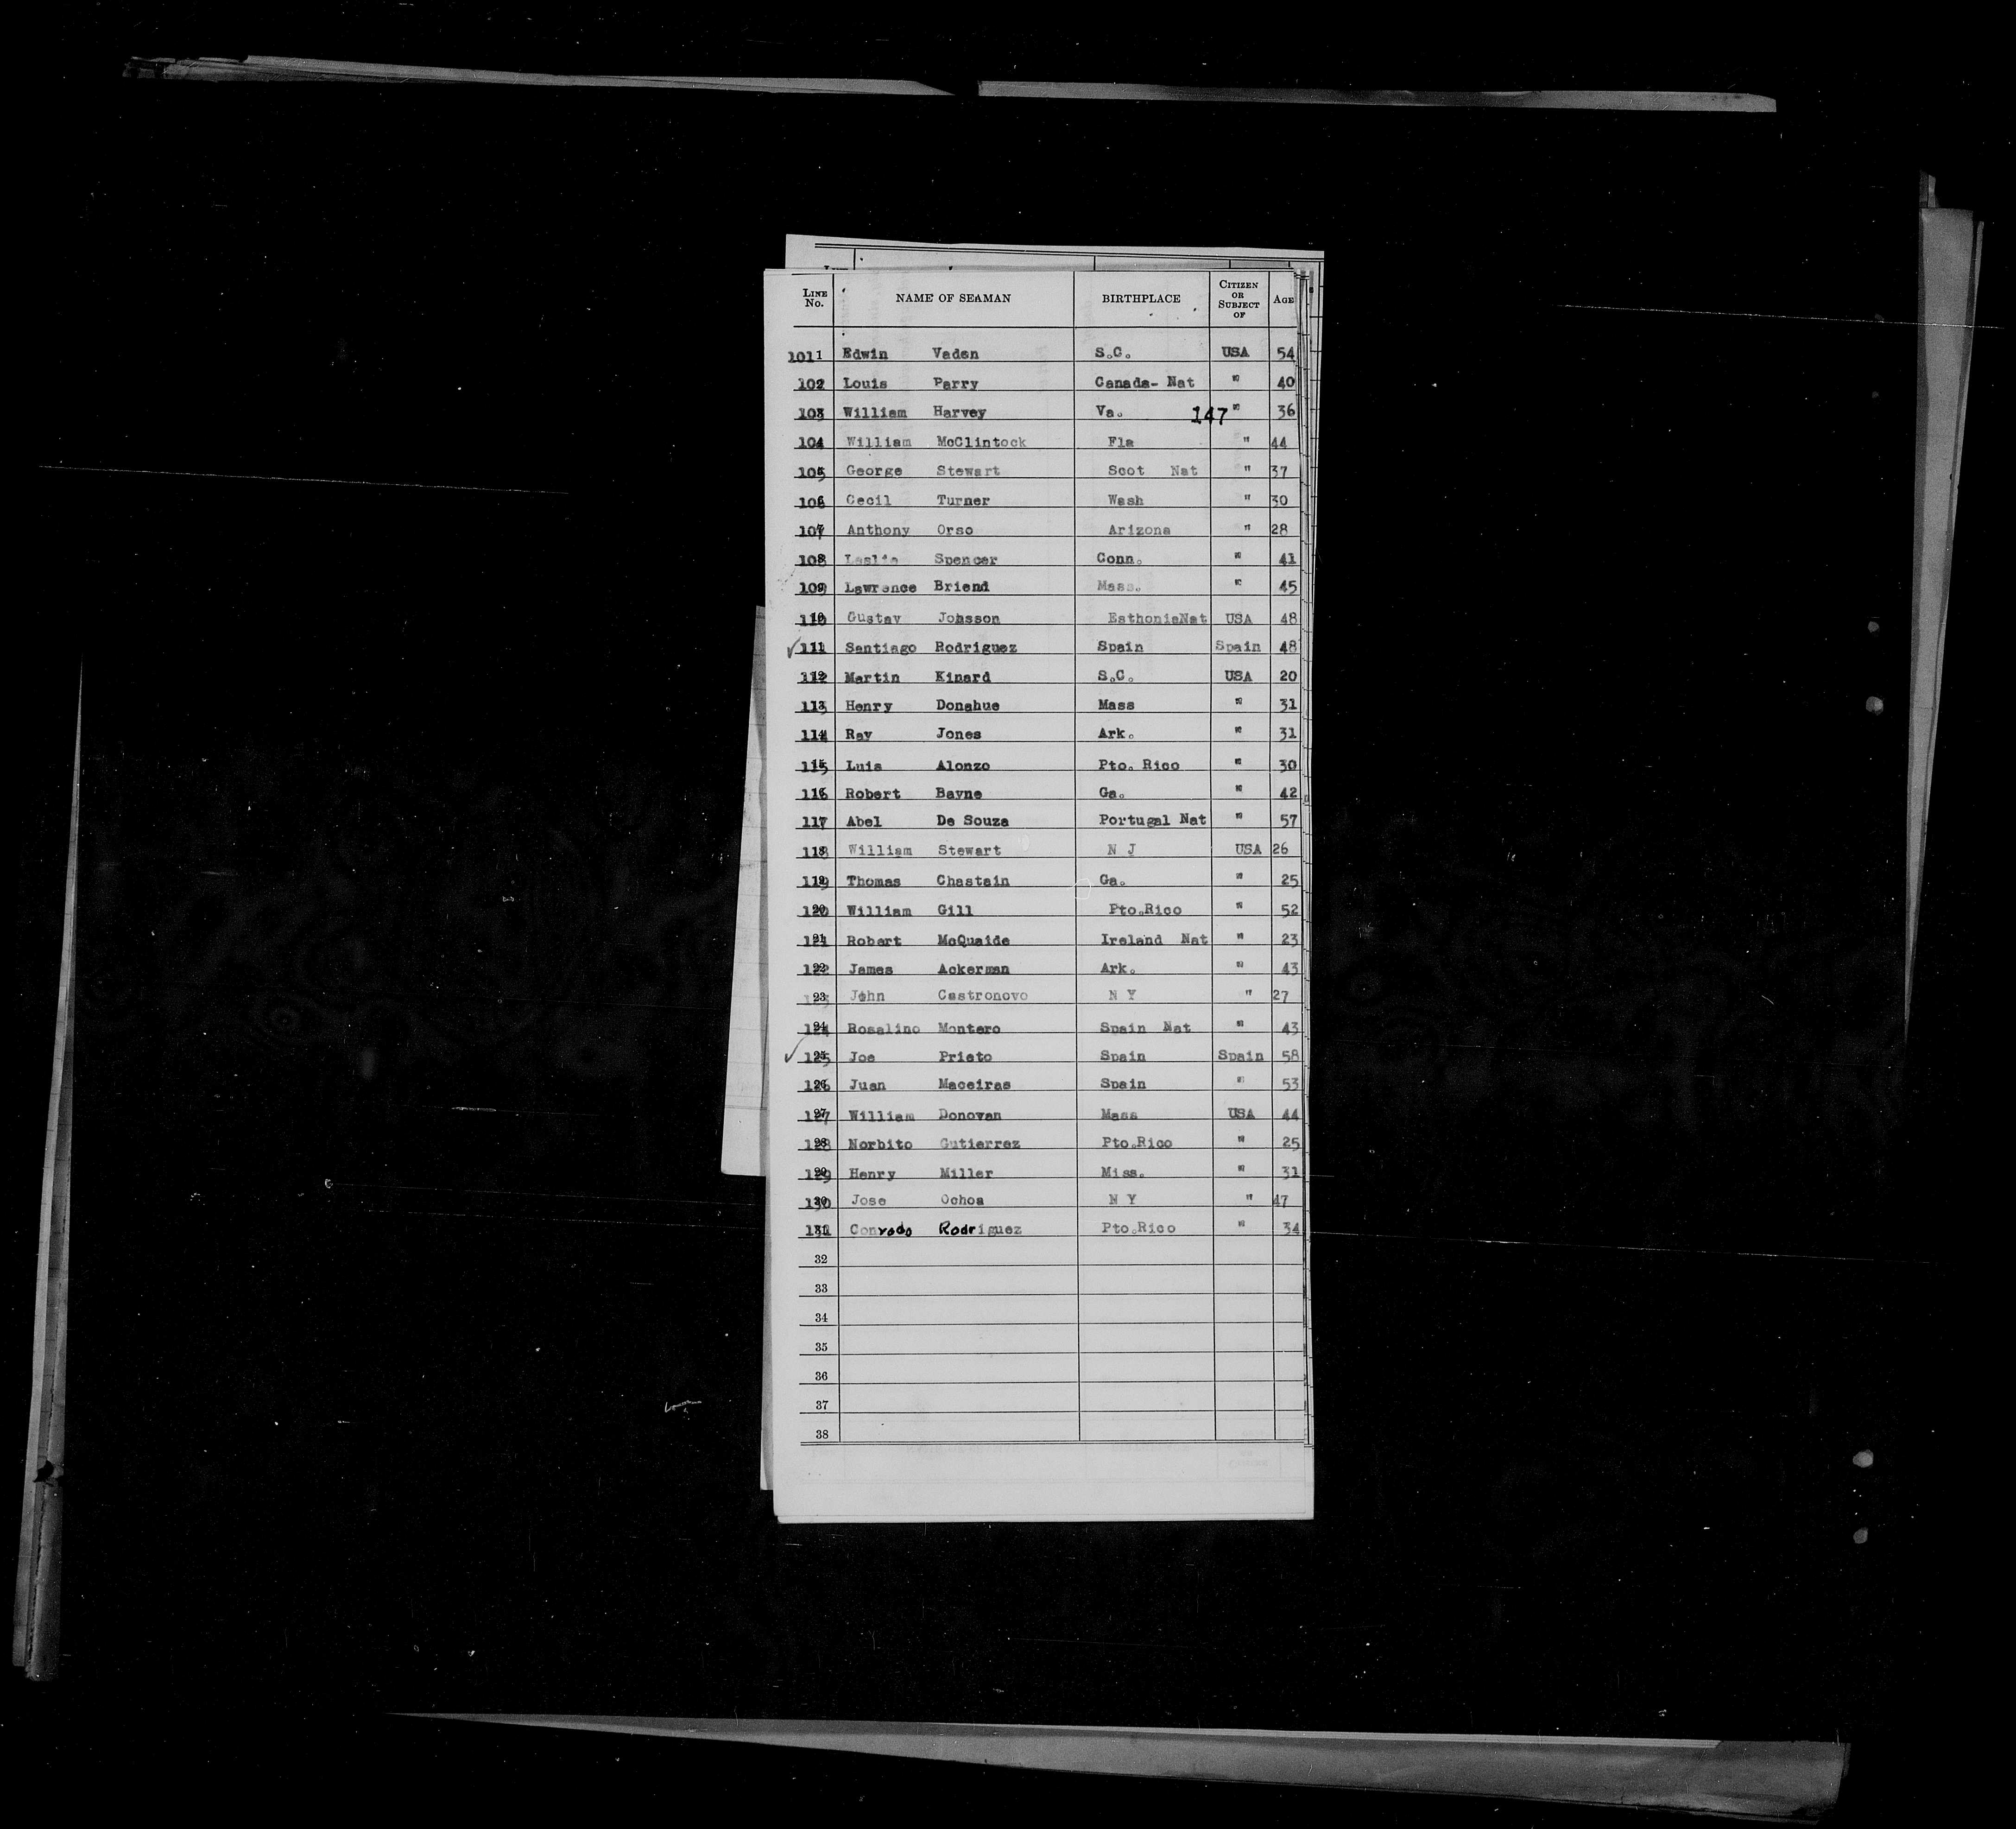 LINE No. NAME OF SEAMAN BIRTHPLACE CITIZEN OR SUBJECT OF AGE
1011 Edwin Vaden S.C. USA 54
102 Louis Parry Canada- Nat " 40
103 William Harvey Va. 147 " 36
104 William McClintock Fla " 44
105 George Stewart Scot Nat " 37
106 Cecil Turner Wash " 30
107 Anthony Orso Arizona " 28
108 Leslie Spencer Conn. " 41
109 Lawrence Briend Mass. " 45
110 Gustav Johsson EsthoniaNat USA 48
111 Santiago Rodriguez Spain Spain 48
112 Martin Kinard S.C. USA 20
113 Henry Donahue Mass " 31
114 Ray Jones Ark. " 31
115 Luis Alonzo Pto. Rico " 30
116 Robert Bayne Ga. " 42
117 Abel De Souza Portugal Nat " 57
118 William Stewart N J USA 26
119 Thomas Chastain Ga. " 25
120 William Gill Pto.Rico " 52
121 Robert McQuaide Ireland Nat " 23
122 James Ackerman Ark. " 43
123 John Castronovo N Y " 27
124 Rosalino Montero Spain Nat " 43
125 Joe Prieto Spain Spain 58
126 Juan Maceiras Spain " 53
127 William Donovan Mass USA 44
128 Norbito Gutierrez Pto.Rico " 25
129 Henry Miller Miss. " 31
130 Jose Ochoa N Y " 47
131 Conrado Rodriguez Pto.Rico " 34
32
33
34
35
36
37
38